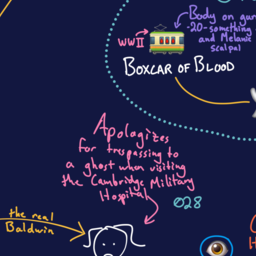 Body on gur
-20-something
and Melanie
scalpal
WWII
BOXCAR OF BLOOD
Apologizes
for trespassing to
a ghost when visiting
the Cambridge Military
Hospital
028
the real
Baldwin